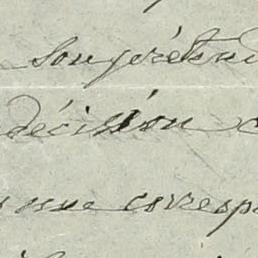 son prétend
décision c
une corresp